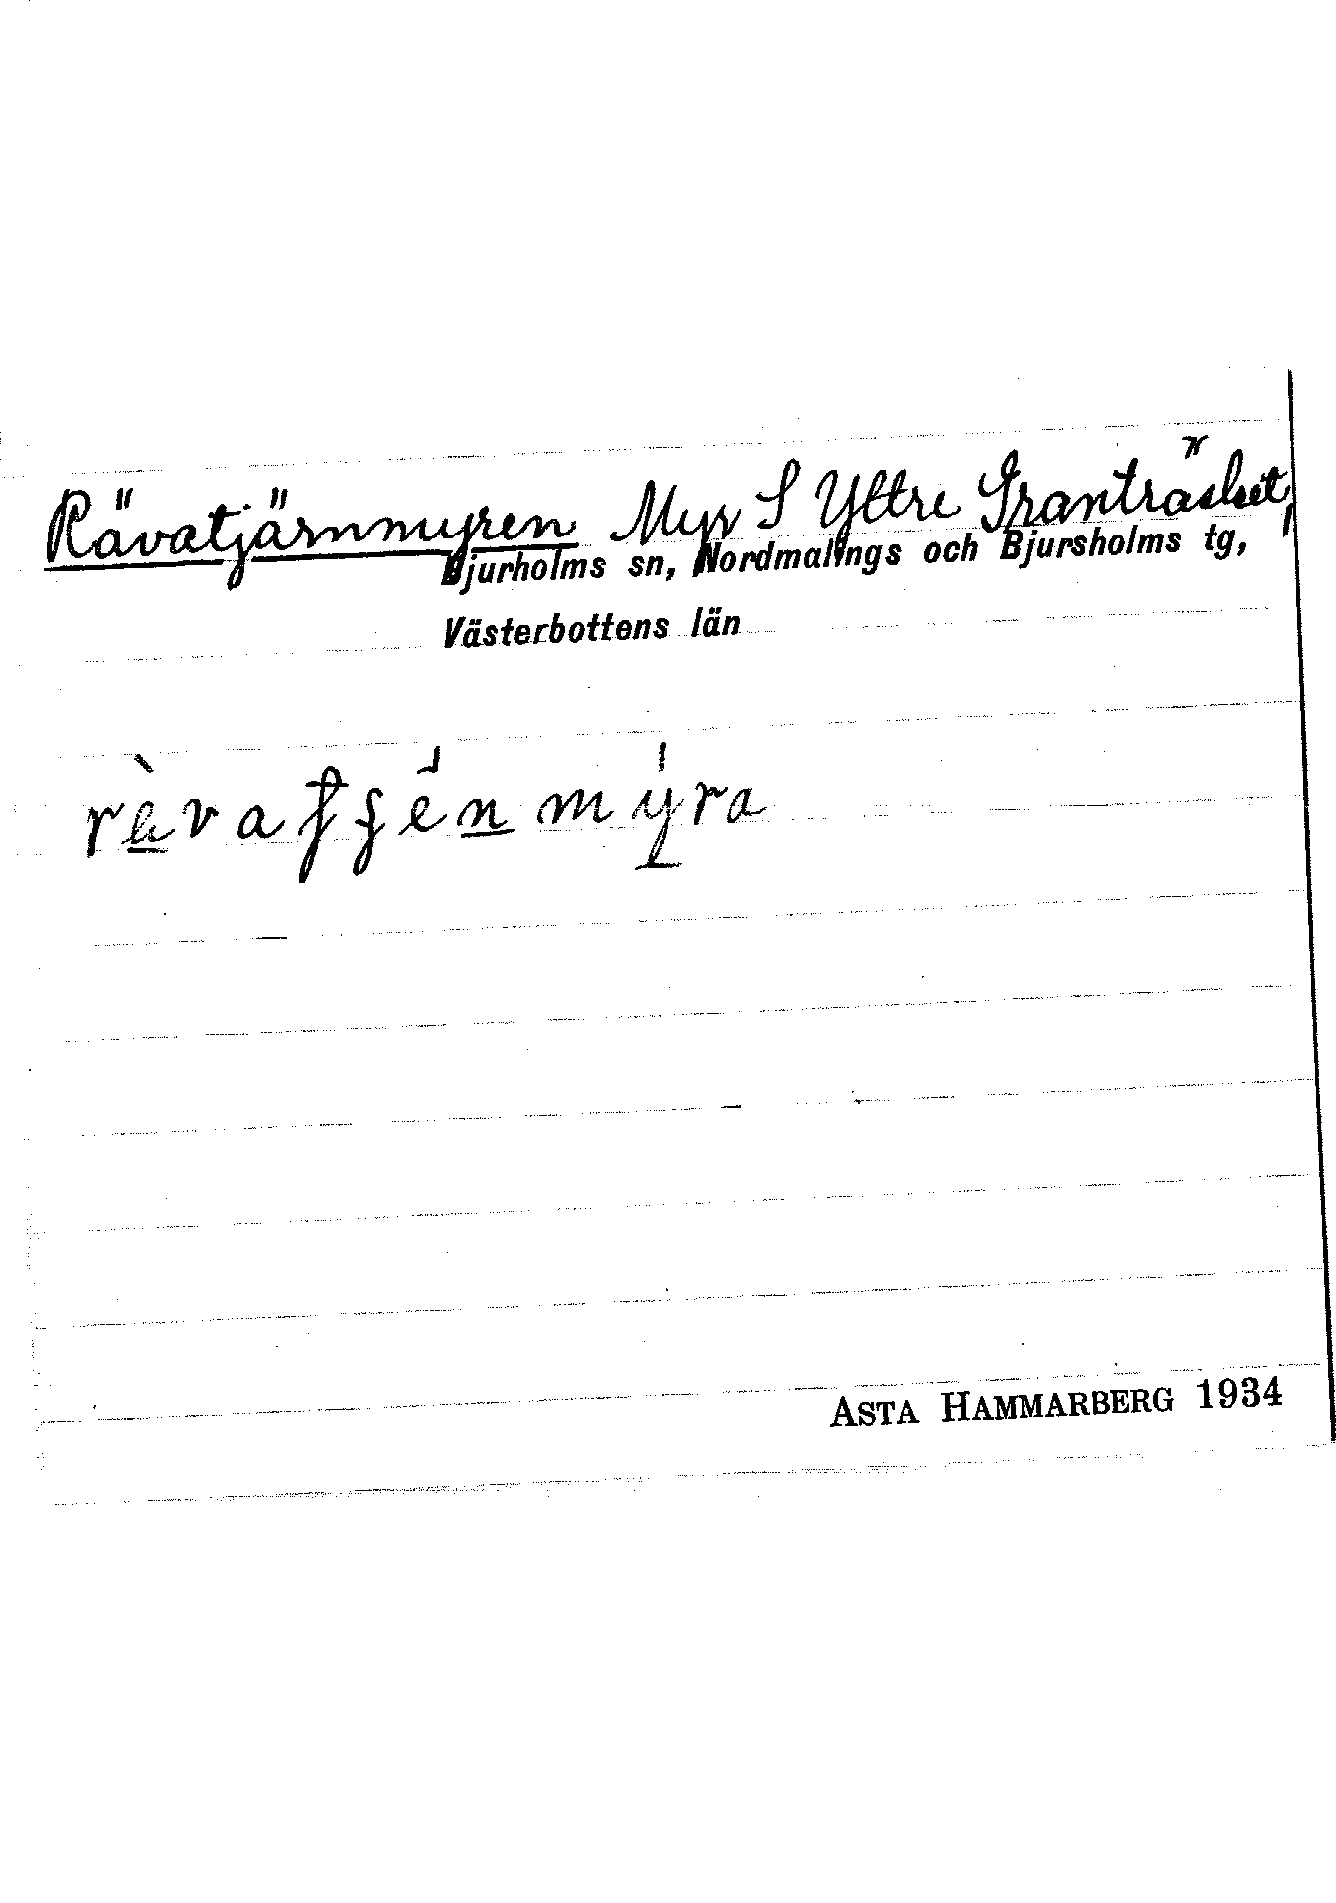 Rävatjärnmyren Myr S Yttre Granträsket,
Bjurholms sn, Nordmalings och Bjursholms tg,
Västerbottens län
rèvatʂénmýra
ASTA HAMMARBERG 1934